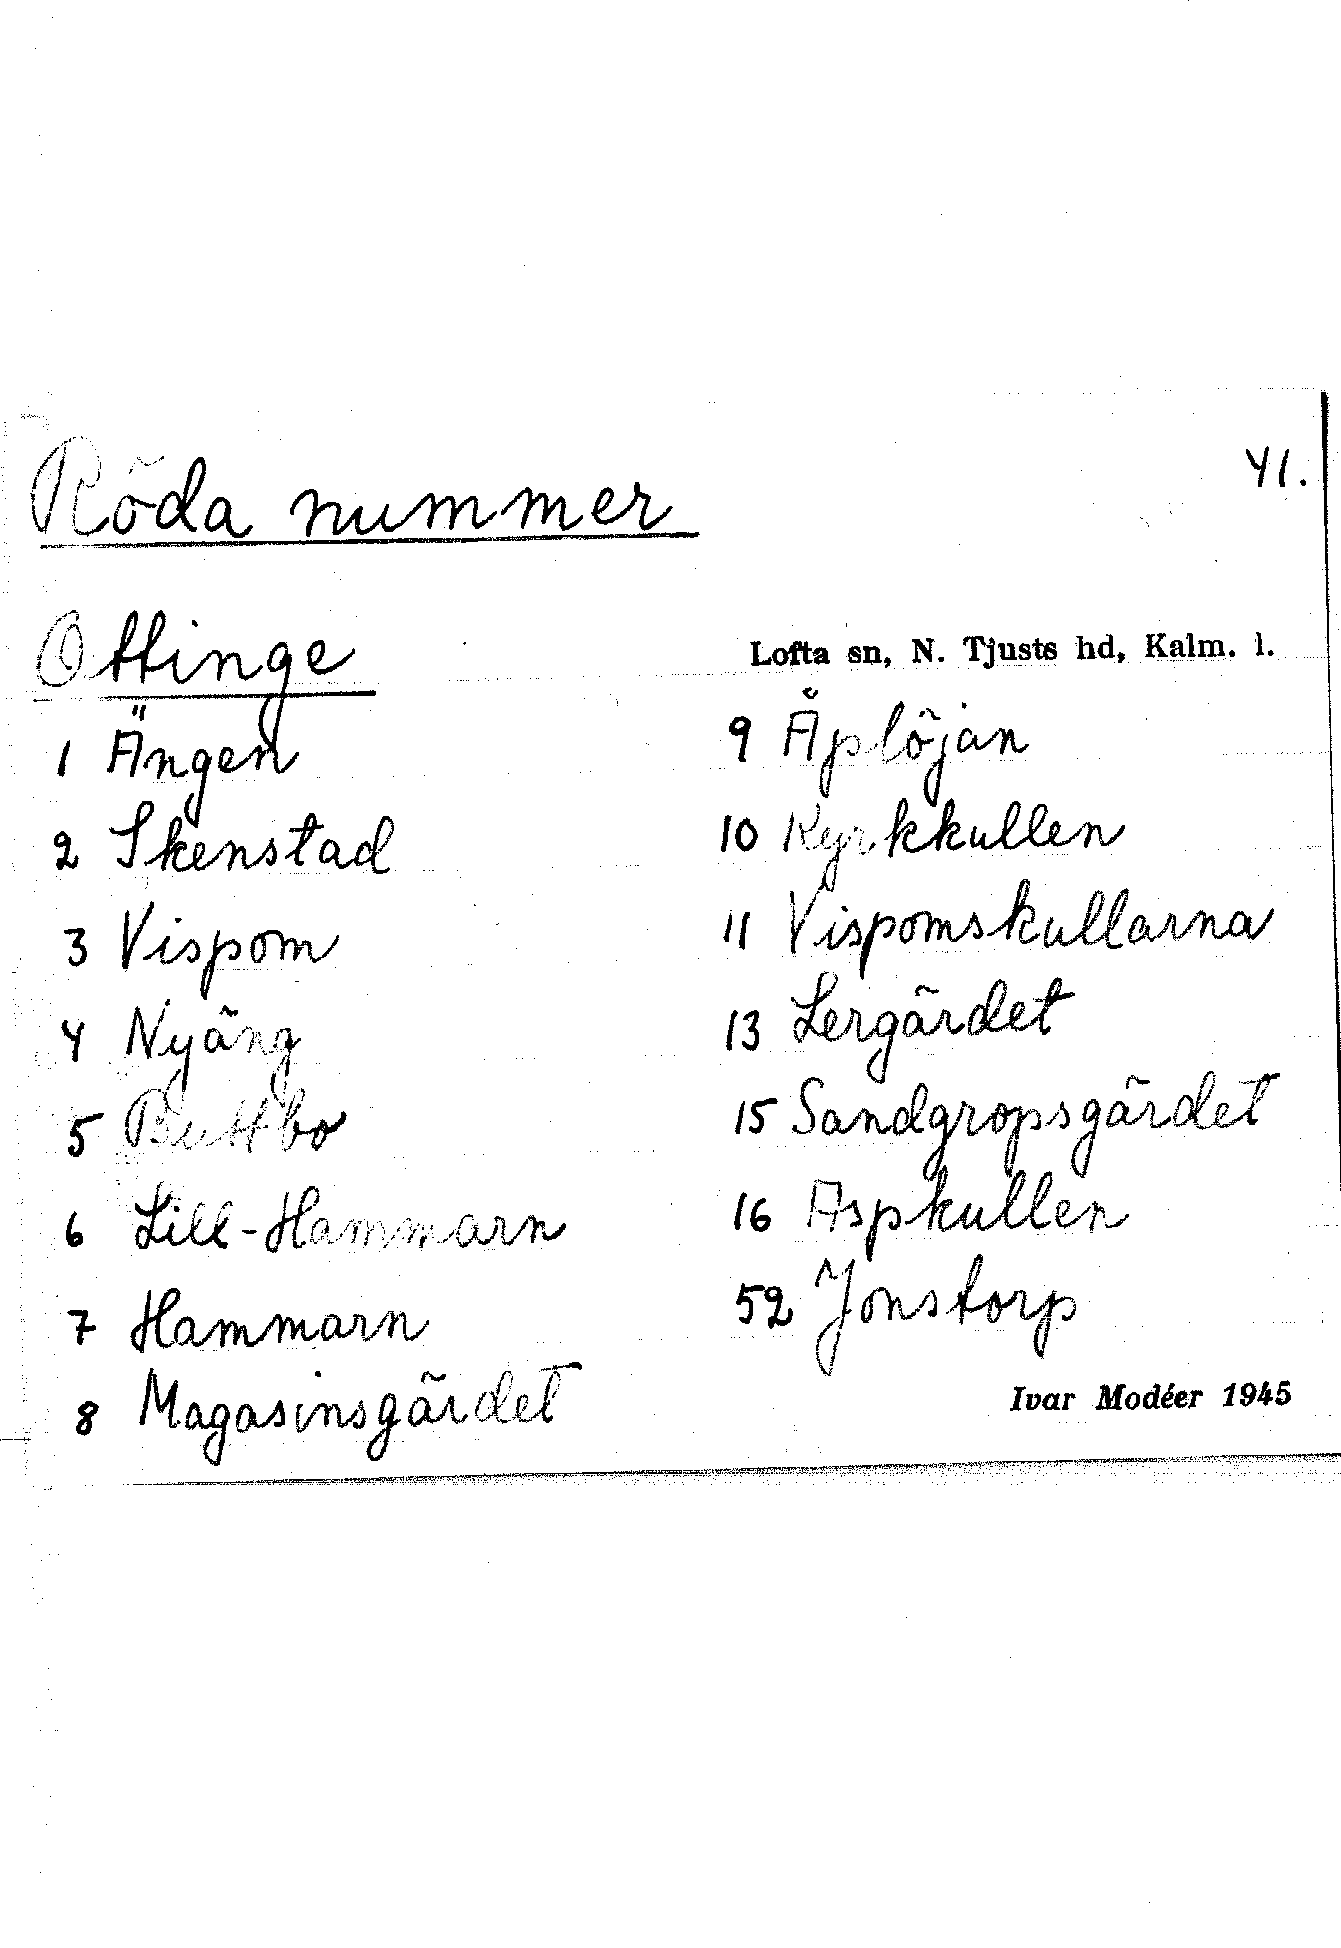 Röda nummer
41.
Ottinge
Lofta sn, N. Tjusts hd, Kalm. l.
1 Ängen
2 Skenstad
3 Vispom
4 Nyäng
5 Buttbo
6 Lill-Hammarn
7 Hammarn
8 Magasinsgärdet
9 Åplöjan
10 Kyrkkullen
11 Vispomskullarna
13 Lergärdet
15 Sandgropsgärdet
16 Aspkullen
52 Jonstorp
Ivar Modéer 1945